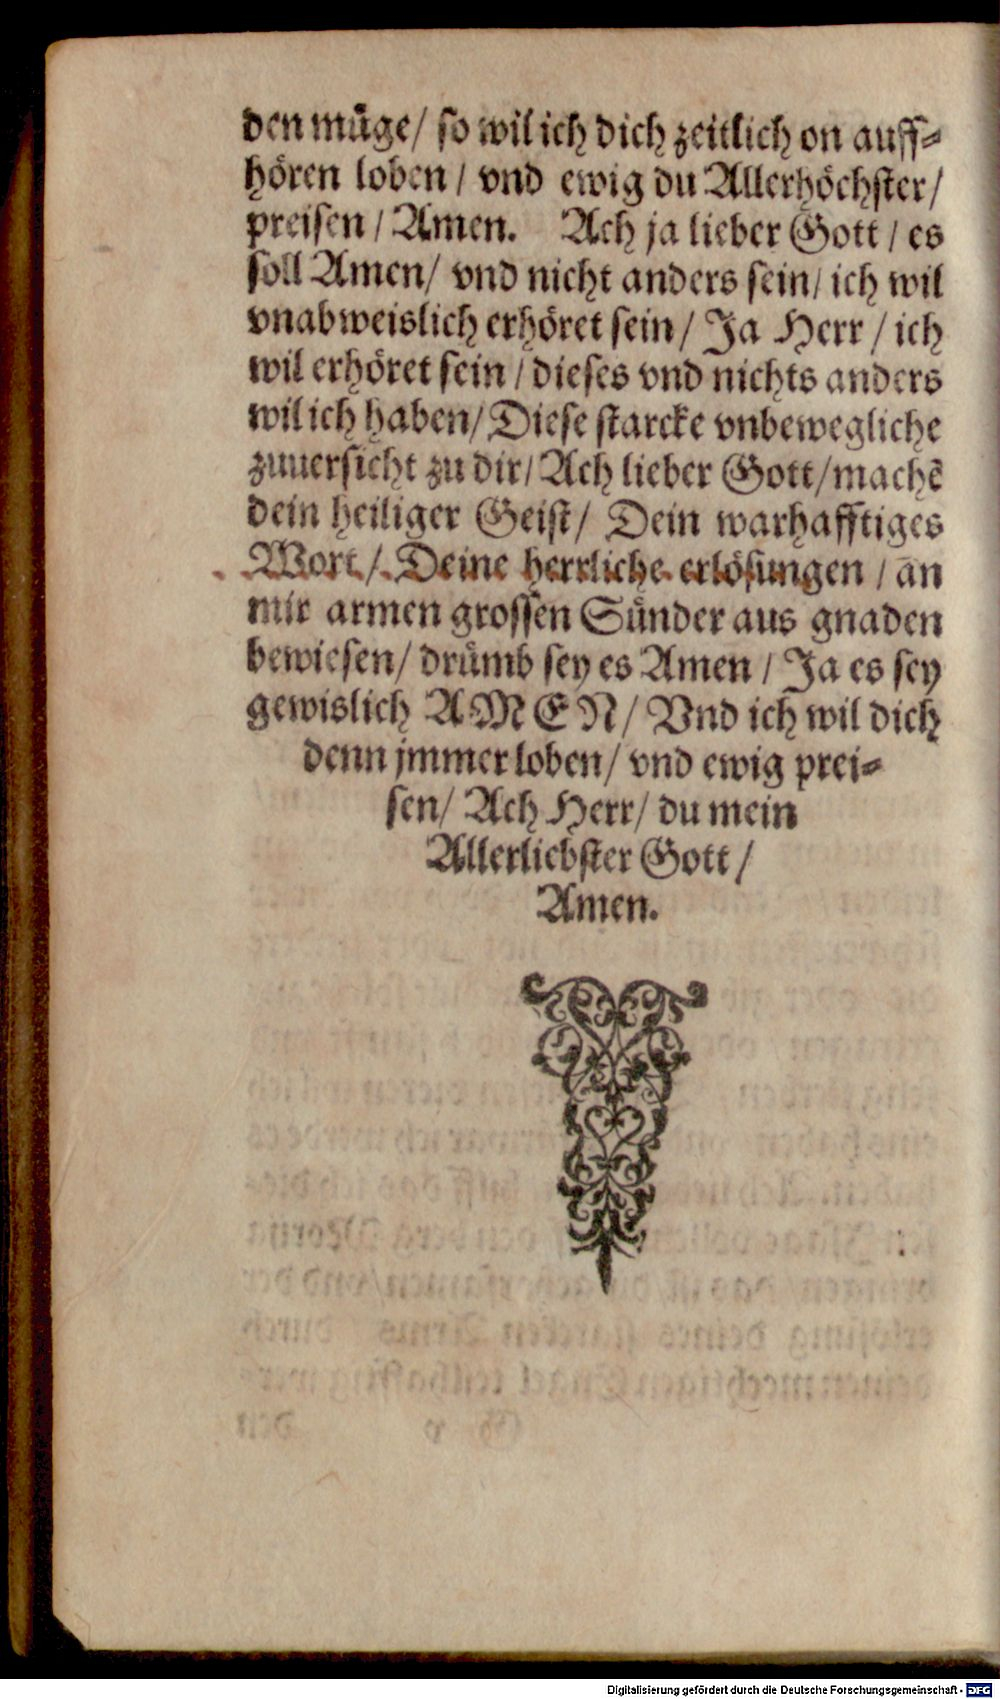 den müge/ so wil ich dich zeitlich on auff-
hören loben / vnd ewig du Allerhöchster/
preisen / Amen. Ach ja lieber Gott / es
soll Amen/ vnd nicht anders sein/ ich wil
vnabweislich erhöret sein/ Ja Herr / ich
wil erhöret sein / dieses vnd nichts anders
wil ich haben/ Diese starcke vnbewegliche
zuuersicht zu dir/ Ach lieber Gott/ machẽ
dein heiliger Geist/ Dein warhafftiges
Wort/ Deine herrliche erlösungen / an
mir armen grossen Sünder aus gnaden
bewiesen/ drümb sey es Amen / Ja es sey
gewislich AMEN/ Vnd ich wil dich
denn jmmer loben/ vnd ewig prei-
sen/ Ach Herr/ du mein
Allerliebster Gott /
Amen.
Digitalisierung gefördert durch die Deutsche Forschungsgemeinschaft - DFG